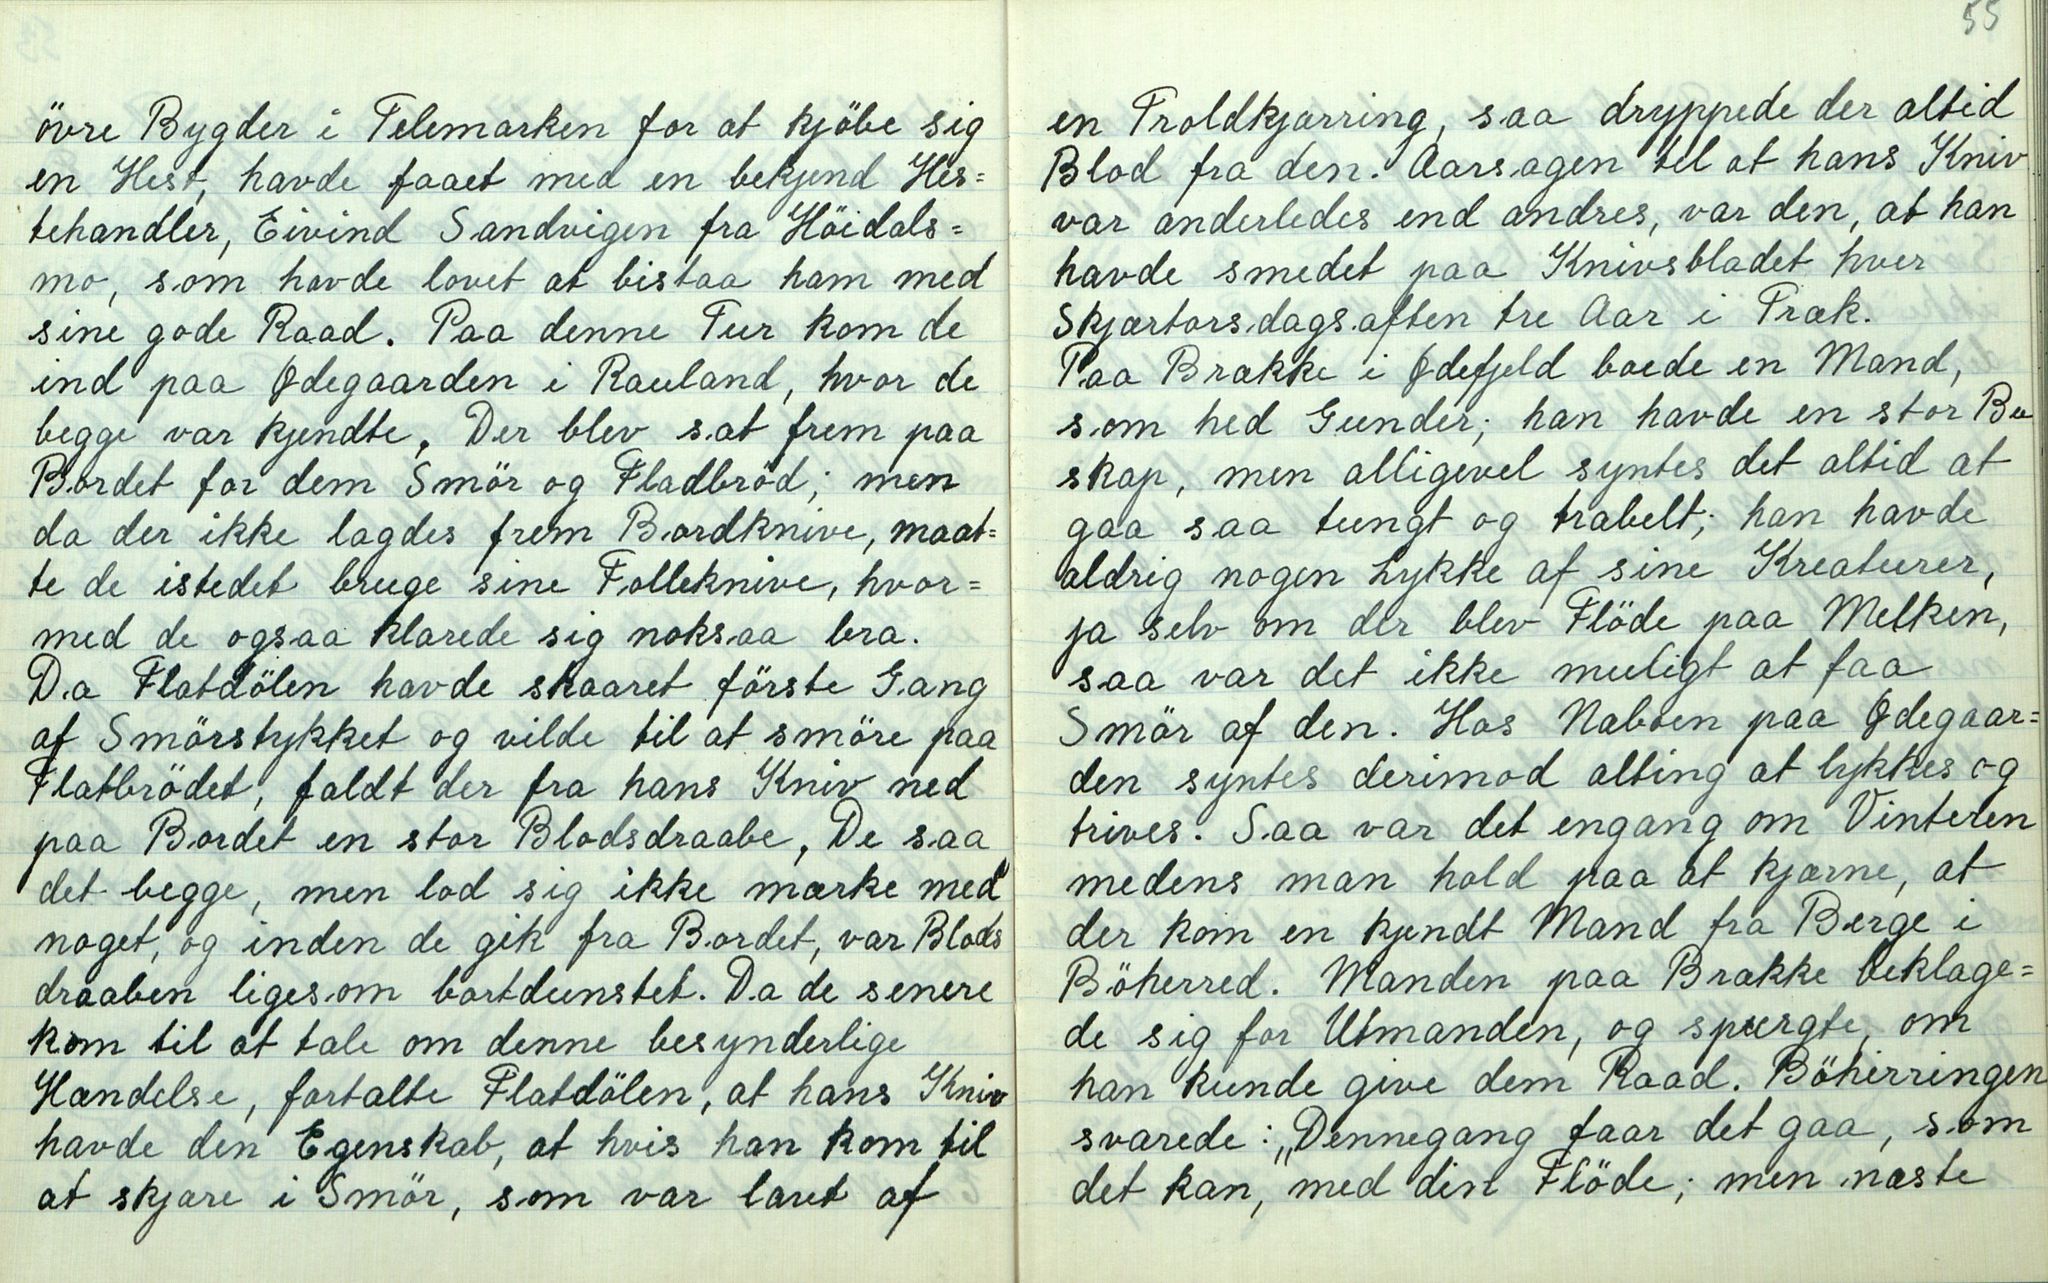 övre Bygder i Telemarken for at kjöbe sig
en Hest, havde faaet med en bekjend Hes=
tehandler, Eivind Sandvigen fra Höidals=
mo, som havde lovet at bistaa ham med
sine gode Raad. Paa denne Tur kom de
ind paa Ødegaarden i Rauland, hvor de
begge var kjendte. Der blev sat frem paa
Bordet for dem Smör og Fladbröd; men
da der ikke lagdes frem Bordknive, maat=
te de istedet bruge sine Folleknive, hvor=
med de ogsaa klarede sig noksaa bra.
Da Flatdölen havde skaaret förste Gang
af Smörstykket og vilde til at smöre paa
Flatbrödet, faldt der fra hans Kniv ned
paa Bordet en stor Blodsdraabe. De saa
det begge, men lod sig ikke mærke med
noget, og inden de gik fra Bordet, var Blods
draaben ligesom bortdunstet. Da de senere
kom til at tale om denne besynderlige
Hændelse, fortalte Flatdölen, at hans Kniv
havde den Egenskab, at hvis han kom til
at skjære i Smör, som var laret af
55
en Troldkjærring, saa dryppede der altid
Blod fra den. Aarsagen til at hans Kniv
var anderledes end andres, var den, at han
havde smedet paa Knivsbladet hver
Skjærtorsdagsaften tre Aar i Træk.
Paa Brække i Ødefjeld boede en Mand,
som hed Gunder; han havde en stor Bu
skap, men alligevel syntes det altid at
gaa saa tungt og trabelt; han havde
aldrig nogen Lykke af sine Kreaturer,
ja selv om der blev Flöde paa Melken,
saa var det ikke muligt at faa
Smör af den. Hos Naboen paa Ødegaar=
den syntes derimod alting at lykkes og
trives. Saa var det engang om Vinteren
medens man hold paa at kjærne, at
der kom en kjendt Mand fra Berge i
Böherred. Manden paa Brække beklage=
de sig for Utmanden, og spurgte, om
han kunde give dem Raad. Böherringen
svarede: „Dennegang faar det gaa, som
det kan, med din Flöde; men næste